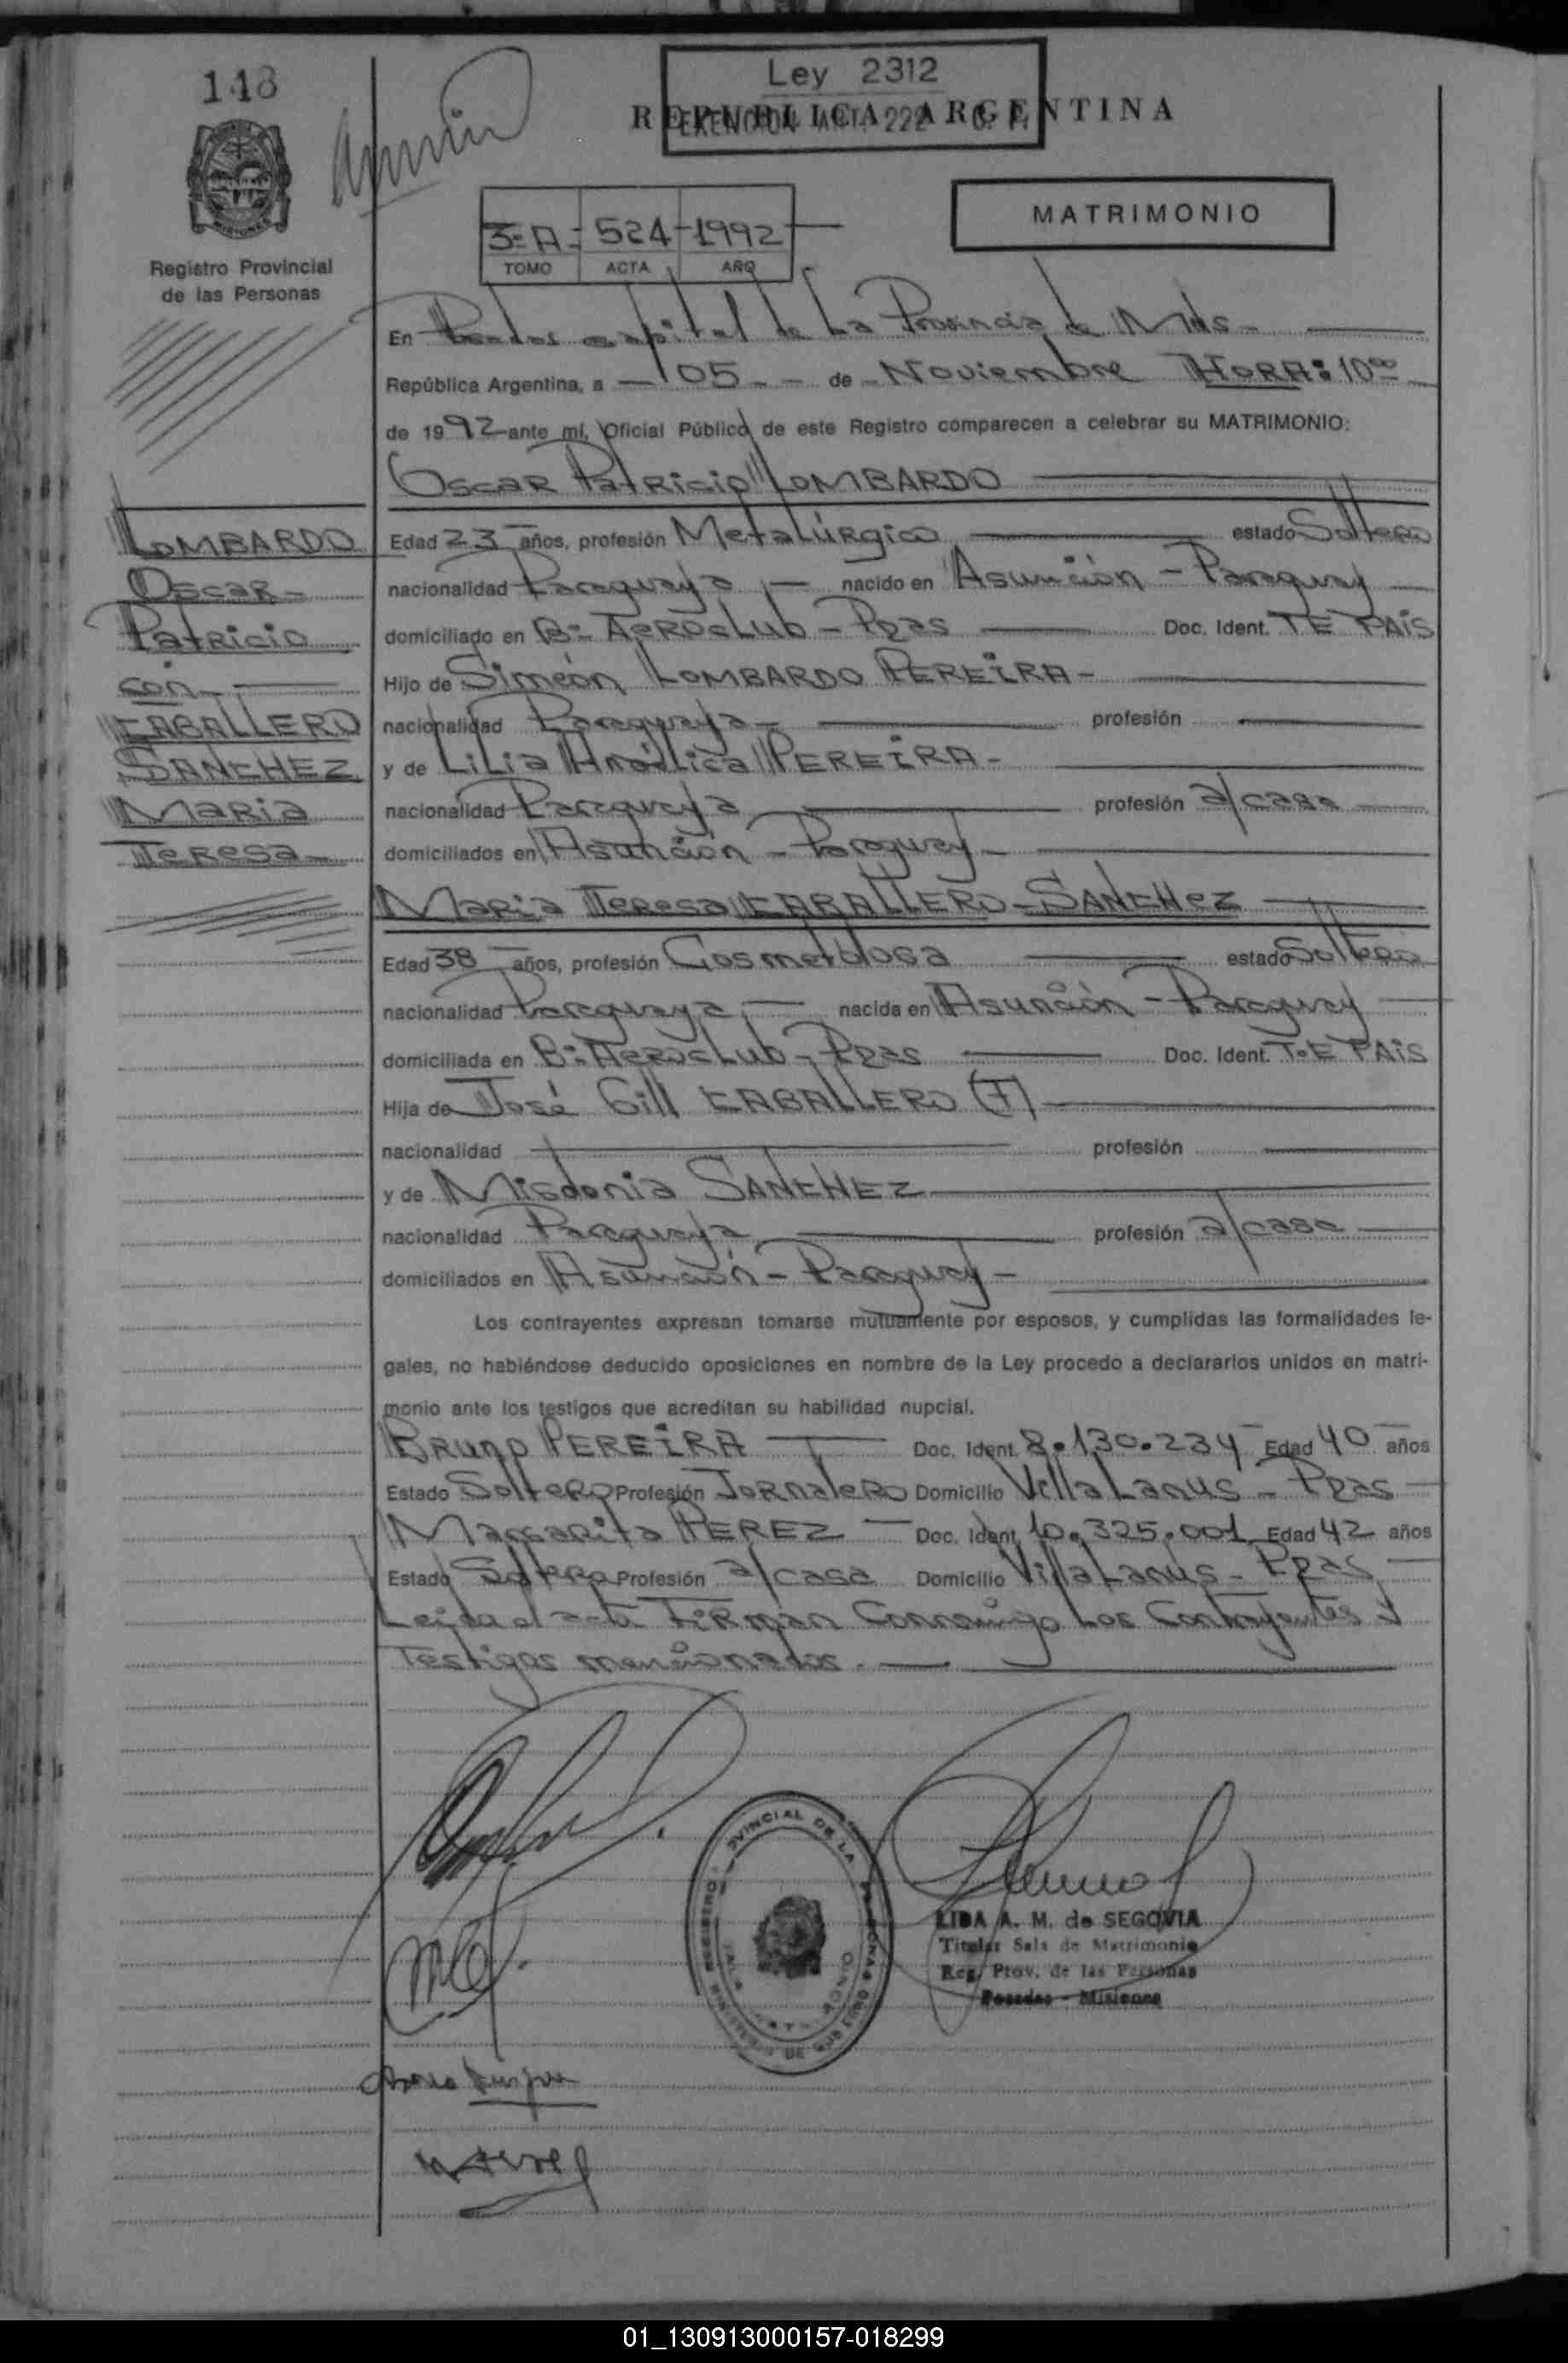 148
Ley 2312
REPUBLICA ARGENTINA
EXENCION ART. 222
MATRIMONIO
3=A- 524-1992
TOMO ACTA AÑO
Registro Provincial
de las Personas
En Posadas capital de La Provincia de Mnes-
República Argentina, a 05 de Noviembre HORA: 10⁰⁰
de 1992 ante mí, Oficial Público de este Registro comparecen a celebrar su MATRIMONIO:
Oscar Patricio LOMBARDO
LOMBARDO
Oscar-
Patricio
con
CABALLERO
SANCHEZ
Maria
Teresa
Edad 23 años, profesión Metalúrgico estado Soltero
nacionalidad Paraguaya nacido en Asunción - Paraguay
domiciliado en B= AeRocLub - Pdas Doc. Ident. TE PAIS
Hijo de Simeón LOMBARDO PEREIRA-
nacionalidad Paraguaya- profesión
y de LiLia PEREIRA-
nacionalidad Paraguaya profesión a/casa
domiciliados en Asunción - Paraguay-
Maria Teresa CABALLERO-SANCHEZ
Edad 38 años, profesión Cosmetóloga estado Soltera
nacionalidad Paraguaya nacida en Asunción - Paraguay
domiciliada en B= AeRocLub - Pdas Doc. Ident. T-E PAIS
Hija de José Gill CABALLERO (†)
nacionalidad profesión
y de Misdonia SANCHEZ
nacionalidad Paraguaya profesión a/casa
domiciliados en Asunción - Paraguay-
Los contrayentes expresan tomarse mutuamente por esposos, y cumplidas las formalidades le-
gales, no habiéndose deducido oposiciones en nombre de la Ley procedo a declararlos unidos en matri-
monio ante los testigos que acreditan su habilidad nupcial.
Bruno PEREIRA Doc. Ident. 8.130.234 Edad 40 años
Estado Soltero Profesión Jornalero Domicilio Villa Lanus - Pdas
Margarita PEREZ Doc. Ident. 10.325.001 Edad 42 años
Estado Soltera Profesión a/casa Domicilio Villa Lanus - Pdas
Leida el acta Firman Conmigo Los Contrayentes y
Testigos mencionados.
LIDA A. M. de SEGOVIA
Titular Sala de Matrimonio
Reg. Prov. de las Personas
Posadas - Misiones
01_130913000157-018299